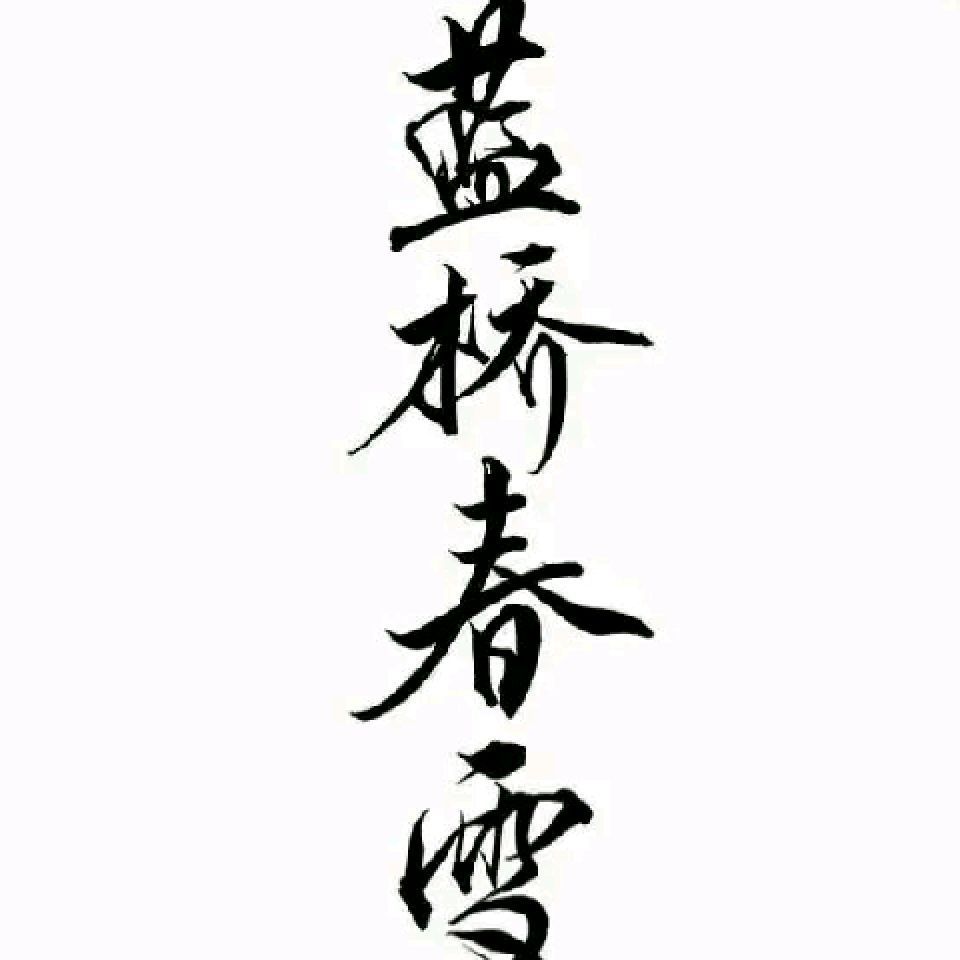 蓝桥春雪